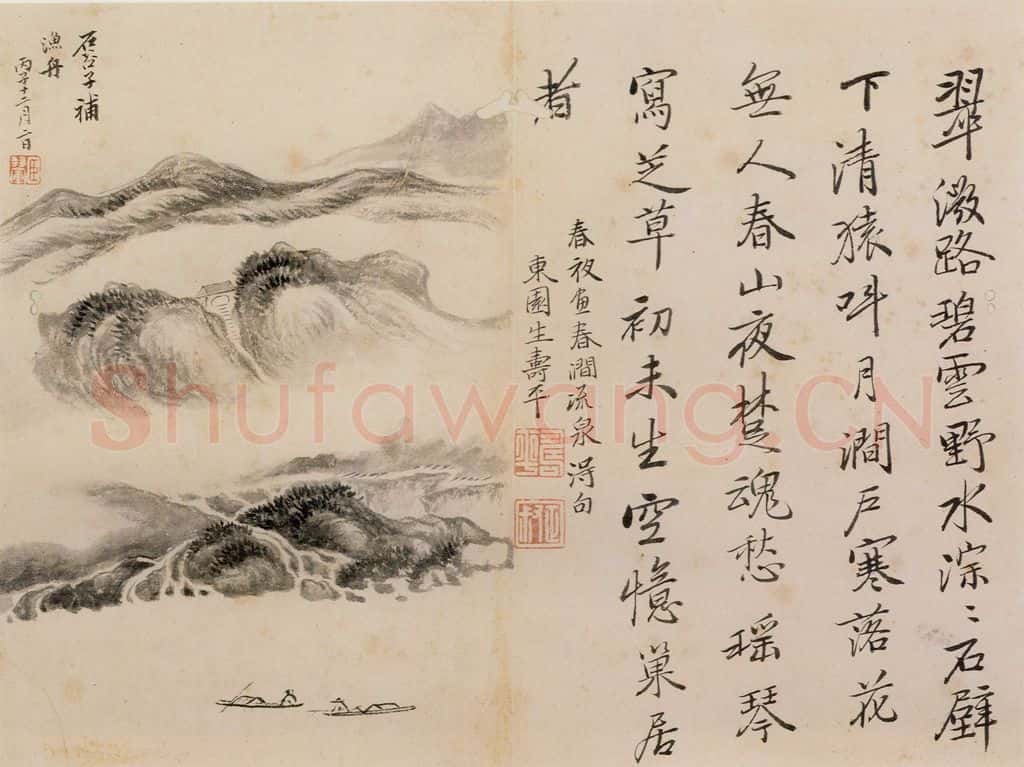 翠微路碧雲野水淙〻石壁
下清猿叫月澗戶寒落花
無人春山夜楚魂愁瑤琴
寫芝草初未生空憶巢居
者
春夜画春澗流泉得句
東園生壽平
石谷子補
漁舟
丙子十二月二日
Shufawang.CN